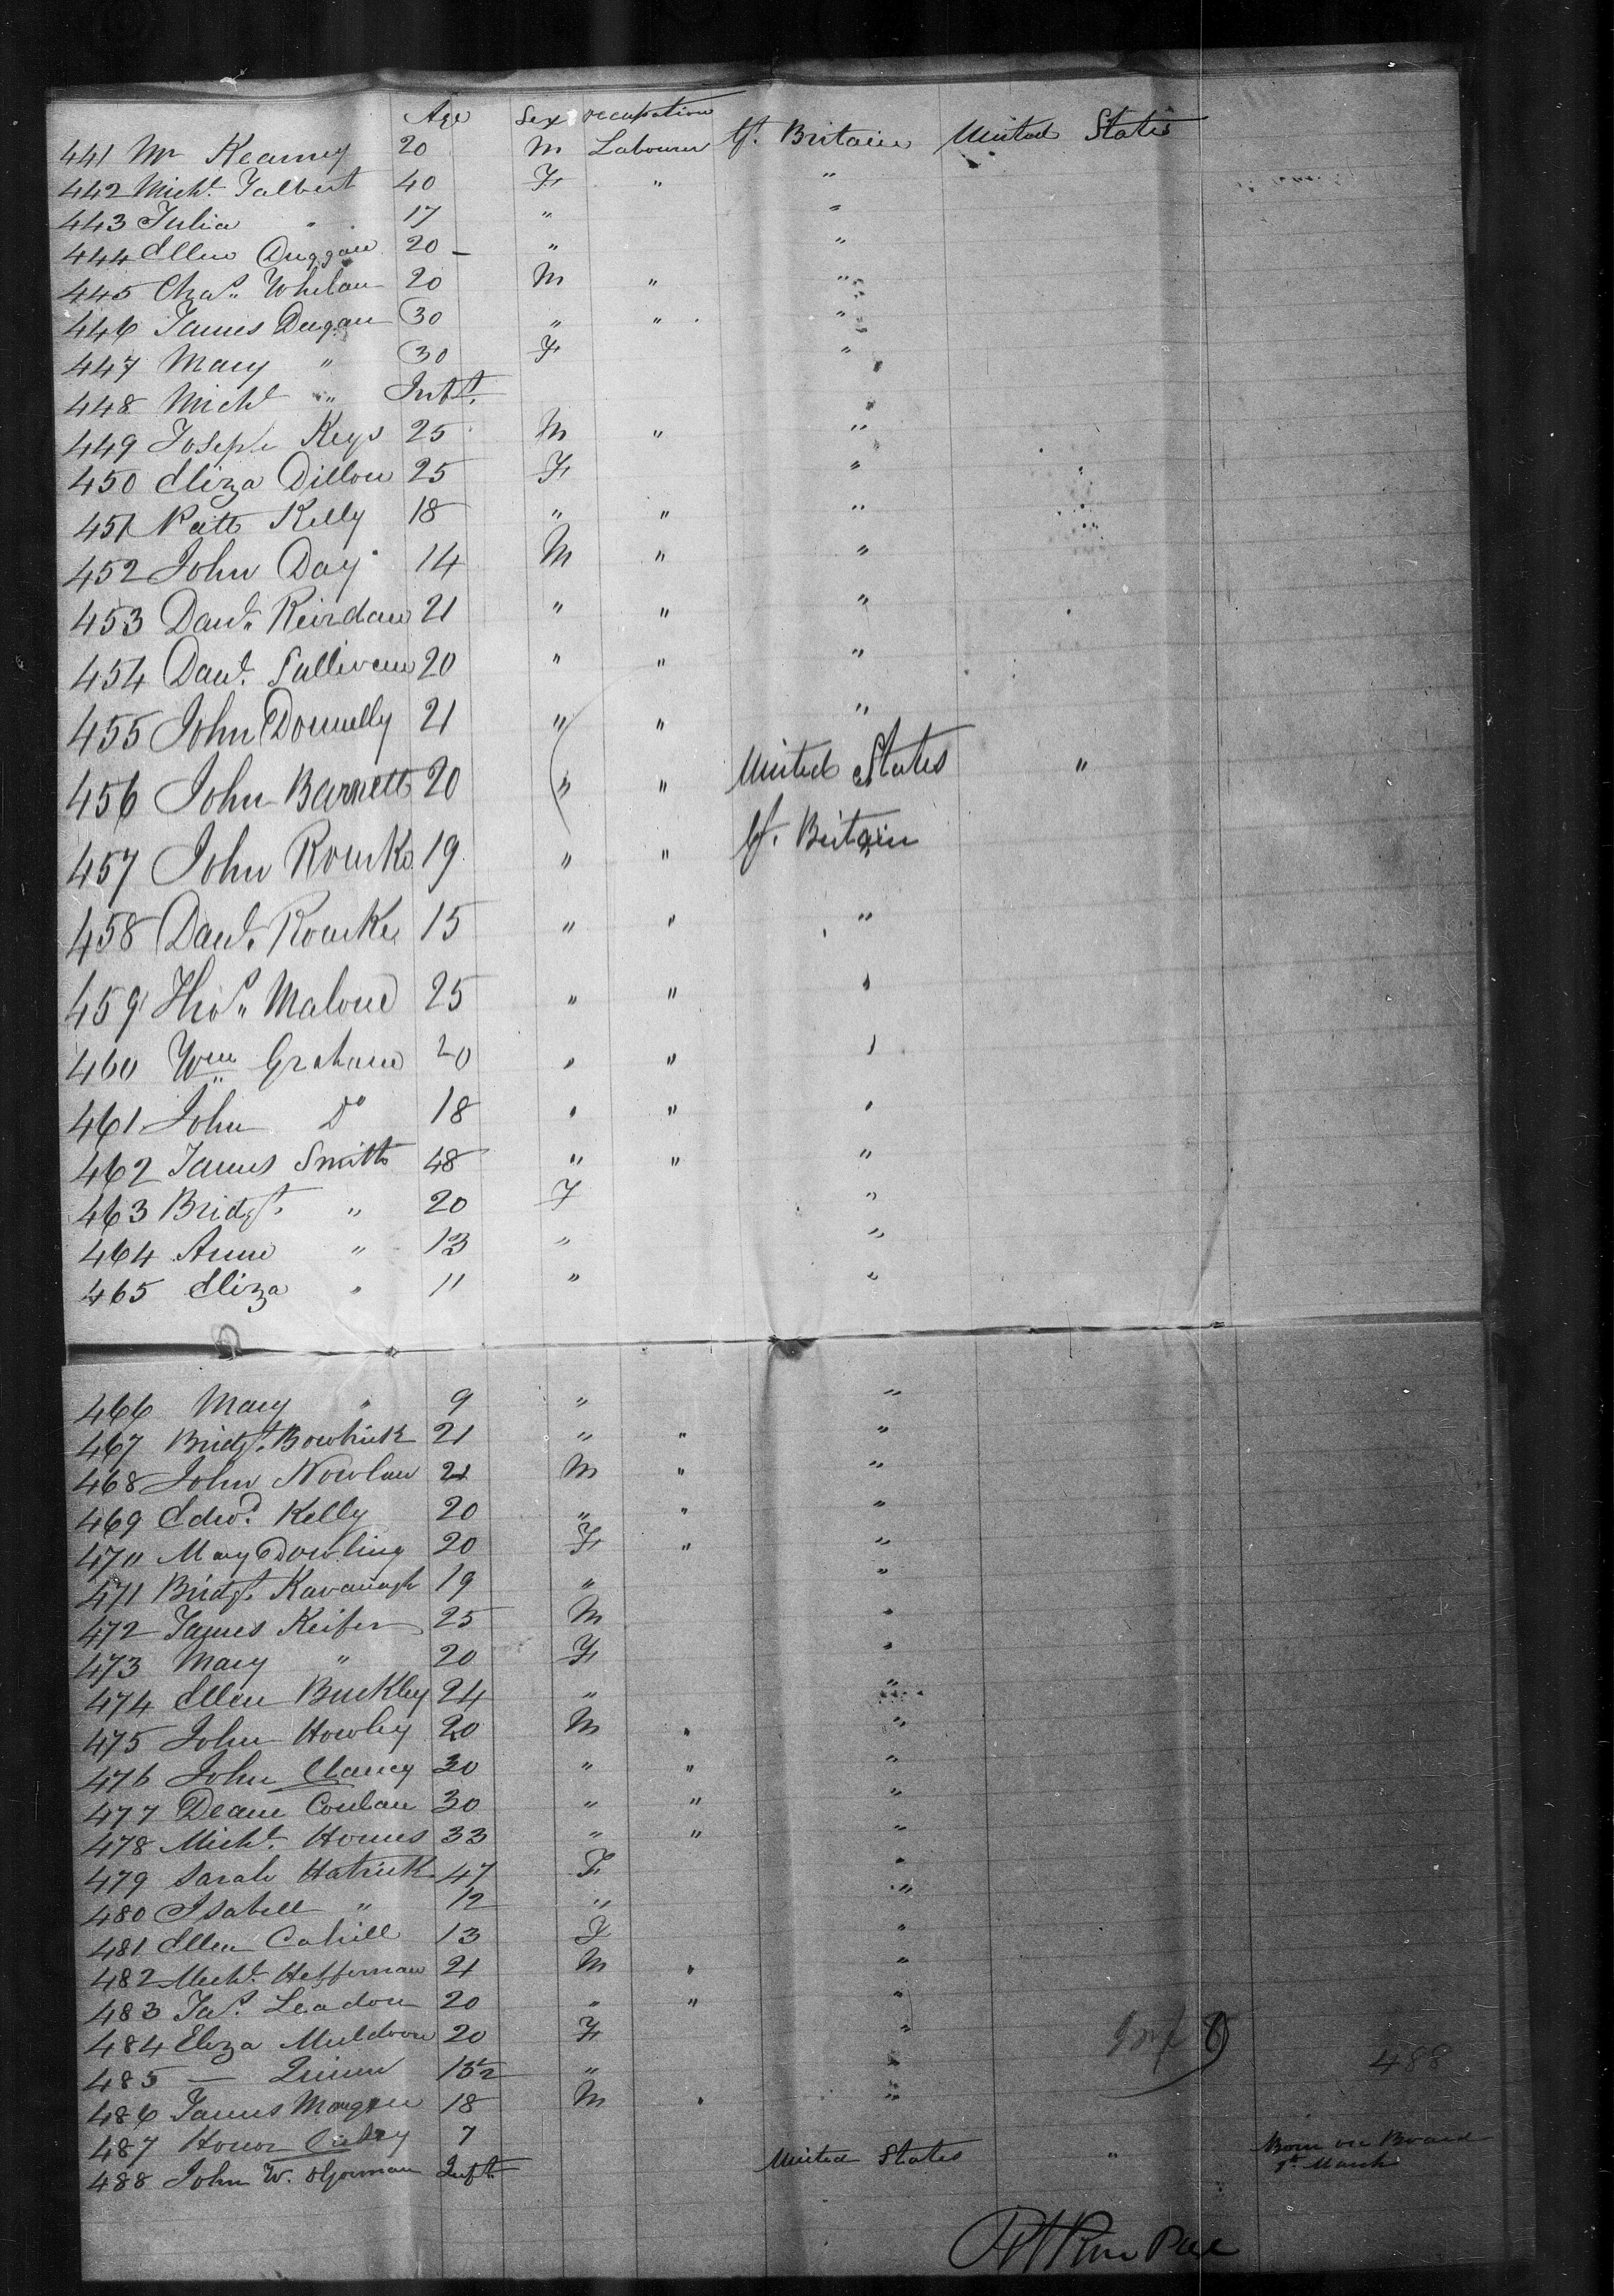 Age Sex occupation
441 Mr Kearney 20 M Labourer Gt. Britain United States
442 Michl. Talbert 40 F " "
443 Julia " 17 " "
444 Ellen Duggan 20 - " "
445 Chas. Whelan 20 M " "
446 James Dugan 30 " " "
447 Mary " 30 F "
448 Michl " Inft.
449 Joseph Keys 25 M " "
450 Eliza Dillon 25 F "
451 Patt Kelly 18 " " "
452 John Day 14 M " "
453 Danl. Reirdan 21 " " "
454 Danl. Sullivan 20 " " "
455 John Donnelly 21 " " "
456 John Barnett 20 " " United States "
457 John Rourke 19 " " Gt. Britain
458 Danl. Rourke 15 " " "
459 Thos. Malone 25 " " "
460 Wm Graham 20 " " "
461 John Do 18 " " "
462 James Smith 48 " " "
463 Bridgt. " 20 F "
464 Anne " 13 " "
465 Eliza " 11 " "
466 Mary " 9 " "
467 Bridgt. 21 " " "
468 John Nowlan 21 M " "
469 Edwd. Kelly 20 " " "
470 Mary Dowling 20 F " "
471 Bridgt. Kavanagh 19 " "
472 James Keifer 25 M "
473 Mary " 20 F "
474 Ellen Buckley 24 " "
475 John Howley 20 M " "
476 John Clancy 30 " " "
477 Conlan 30 " " "
478 Michl. Homes 33 " " "
479 Sarah Hatrick 47 F "
480 Isabell " 12 " "
481 Ellen Cahill 13 F "
482 Michl. Heffernan 21 M " "
483 Jas. Leadon 20 " " "
484 Eliza Muldoon 20 F "
485 — Quinn " "
486 James 18 M " "
487 Honor 7
488 John W. OGorman Inft United States " Born on Board
March
488